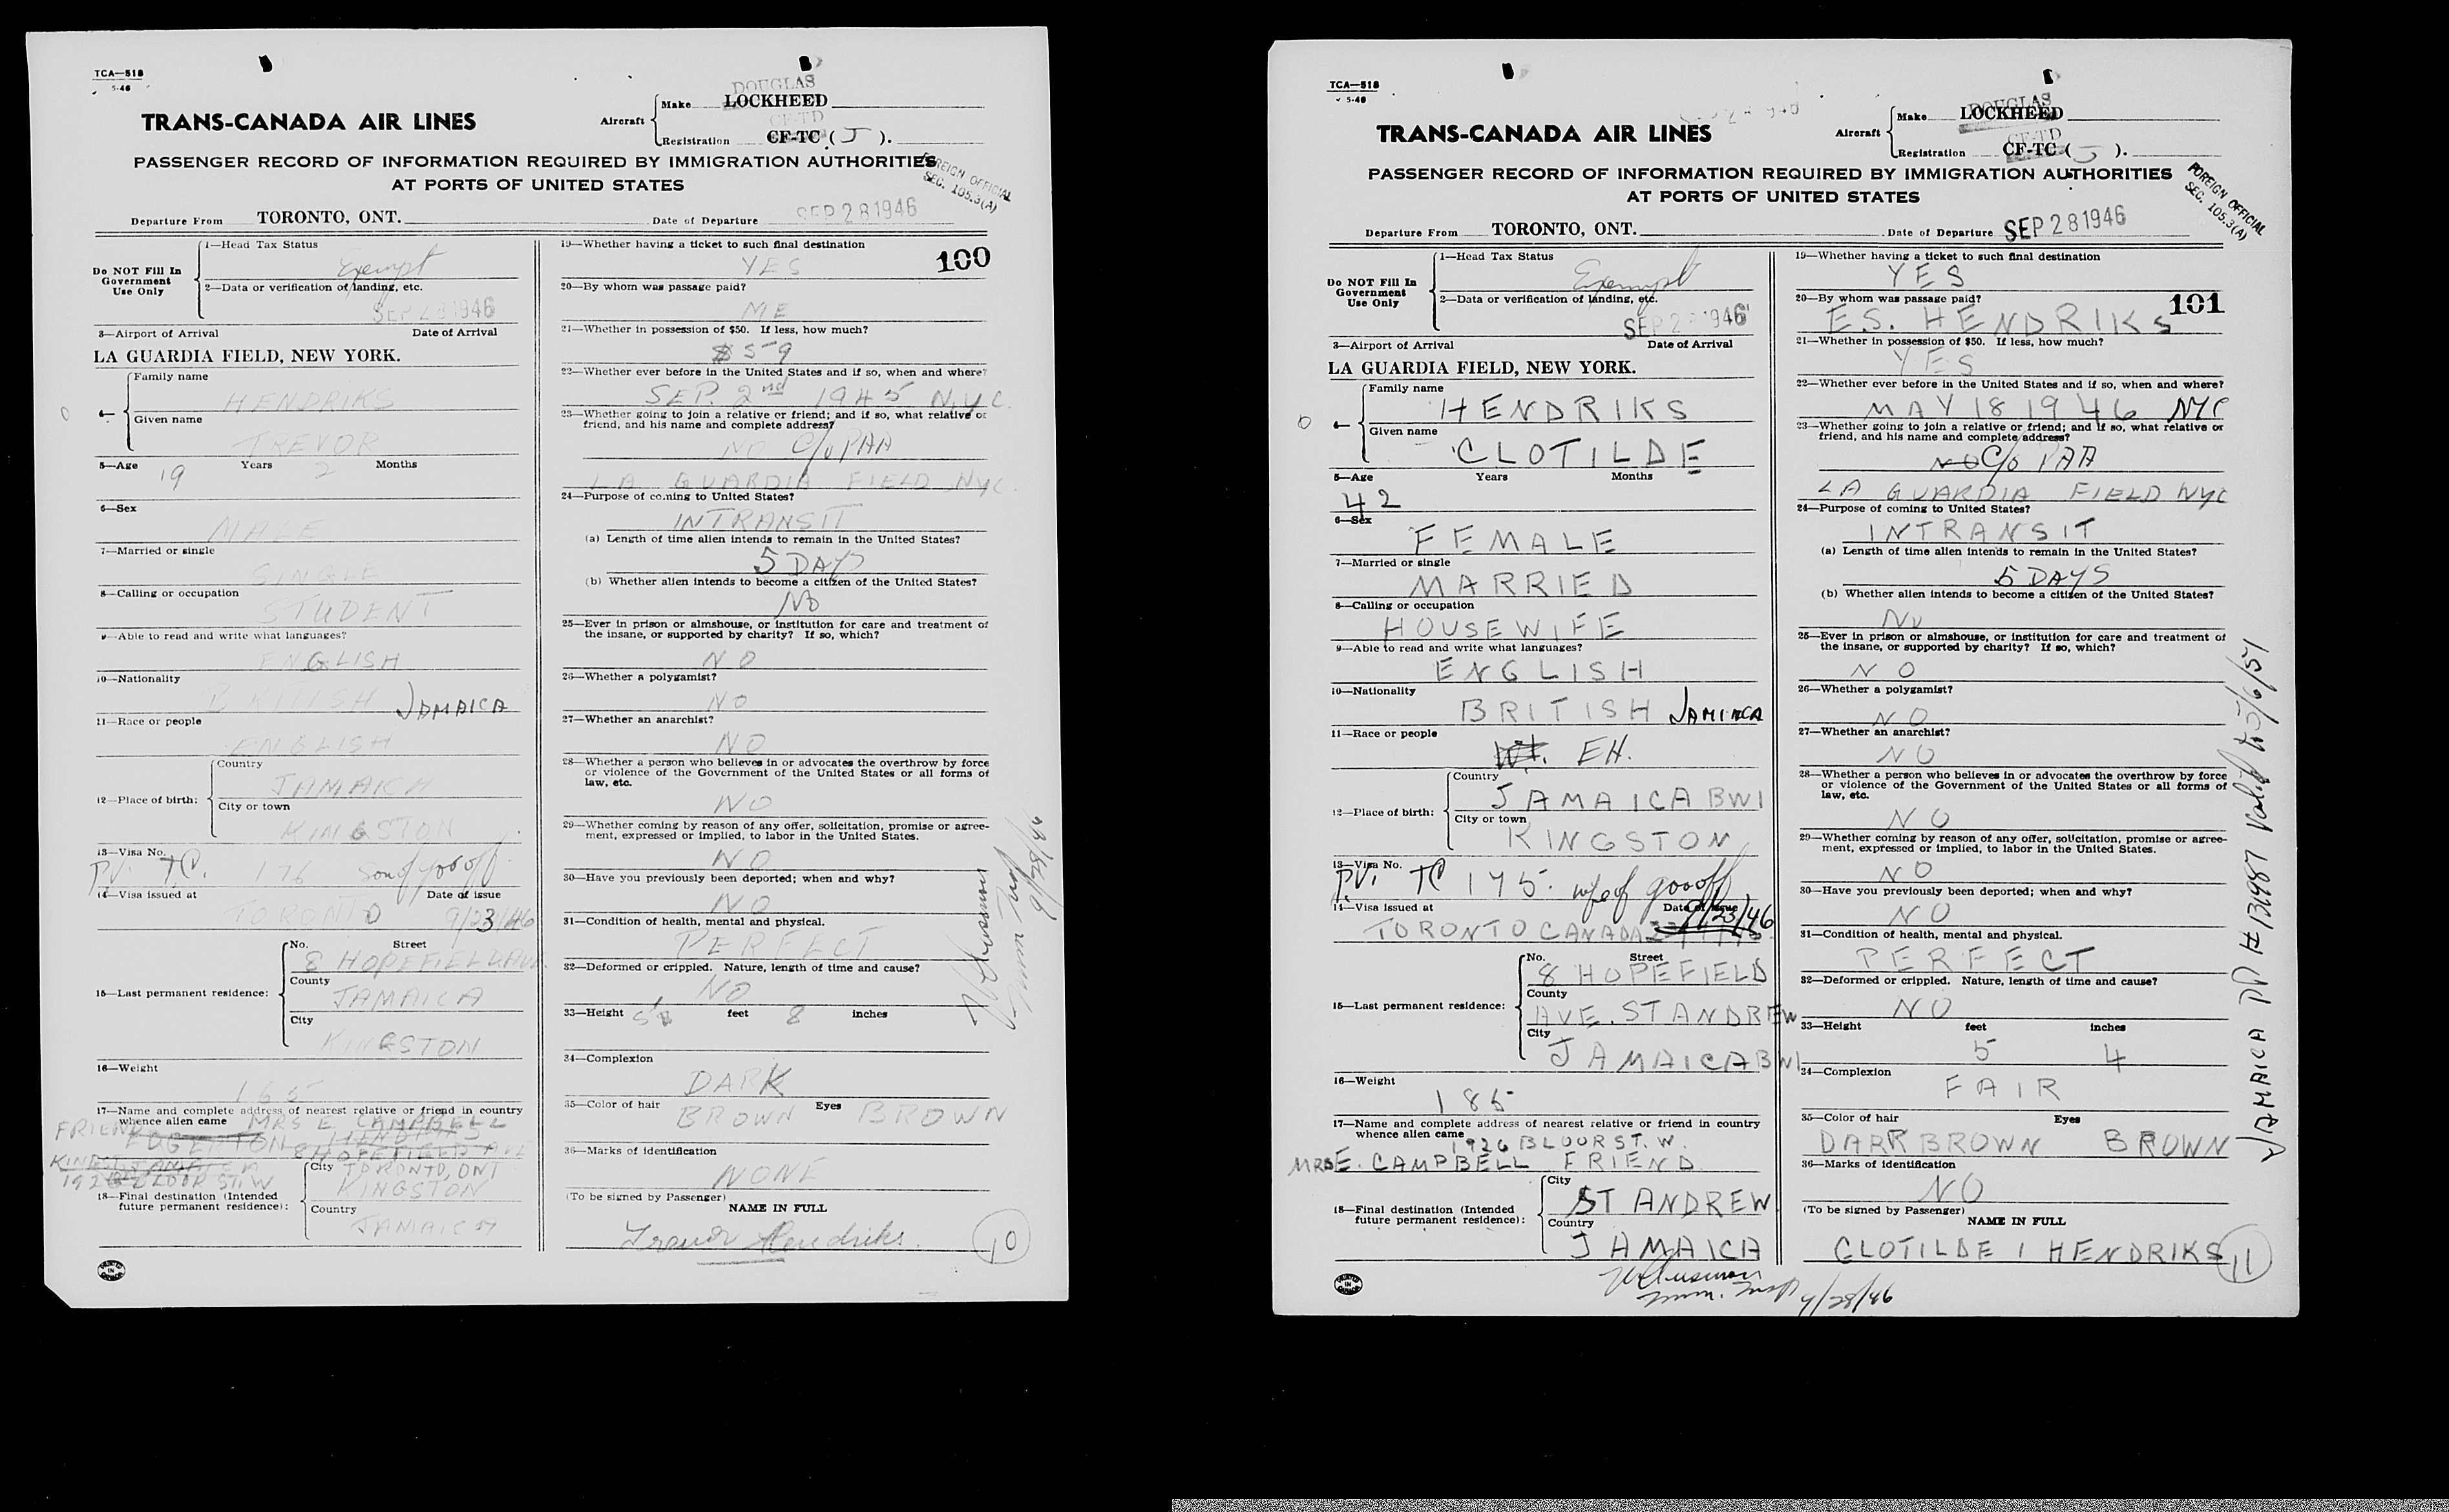 TCA—518
5-46
TRANS-CANADA AIR LINES
Aircraft
Make LOCKHEED
DOUGLAS
CF-TD
Registration CF-TC ( J ).
PASSENGER RECORD OF INFORMATION REQUIRED BY IMMIGRATION AUTHORITIES
AT PORTS OF UNITED STATES
FOREIGN OFFICIAL
SEC. 105.3(A)
Departure From TORONTO, ONT. Date of Departure SEP 28 1946
Do NOT Fill In Government Use Only
1—Head Tax Status
Exempt
2—Data or verification of landing, etc.
SEP 28 1946
3—Airport of Arrival Date of Arrival
LA GUARDIA FIELD, NEW YORK.
4—
Family name
HENDRIKS
Given name
TREVOR
5—Age 19 Years 2 Months
6—Sex
MALE
7—Married or single
SINGLE
8—Calling or occupation
STUDENT
9—Able to read and write what languages?
ENGLISH
10—Nationality
BRITISH JAMAICA
11—Race or people
ENGLISH
12—Place of birth:
Country
JAMAICA
City or town
KINGSTON
13—Visa No.
PV. TC. 176 son of goooff
14—Visa issued at Date of issue
TORONTO 9/23/46
15—Last permanent residence:
No. Street
8 HOPEFIELD AVE
County
JAMAICA
City
KINGSTON
16—Weight
165
17—Name and complete address of nearest relative or friend in country
whence alien came MRS E CAMPBELL
FRIEND EDGERTON HENDRIKS
8 HOPEFIELD AVE
KINGSTON JAMAICA
1926 BLOOR ST. W
18—Final destination (Intended future permanent residence):
City TORONTO, ONT
KINGSTON
Country
JAMAICA
19—Whether having a ticket to such final destination
YES
100
20—By whom was passage paid?
ME
21—Whether in possession of $50. If less, how much?
$59
22—Whether ever before in the United States and if so, when and where?
SEP. 2nd 1945 N.Y.C.
23—Whether going to join a relative or friend; and if so, what relative or
friend, and his name and complete address?
NO C/o PAA
LA GUARDIA FIELD NYC.
24—Purpose of coming to United States?
INTRANSIT
(a) Length of time alien intends to remain in the United States?
5 DAYS
(b) Whether alien intends to become a citizen of the United States?
NO
25—Ever in prison or almshouse, or institution for care and treatment of
the insane, or supported by charity? If so, which?
NO
26—Whether a polygamist?
NO
27—Whether an anarchist?
NO
28—Whether a person who believes in or advocates the overthrow by force
or violence of the Government of the United States or all forms of
law, etc.
NO
29—Whether coming by reason of any offer, solicitation, promise or agree-
ment, expressed or implied, to labor in the United States.
NO
30—Have you previously been deported; when and why?
NO
31—Condition of health, mental and physical.
PERFECT
32—Deformed or crippled. Nature, length of time and cause?
NO
33—Height 5 feet 8 inches
34—Complexion
DARK
35—Color of hair BROWN Eyes BROWN
36—Marks of identification
NONE
(To be signed by Passenger)
NAME IN FULL
Trevor Hendriks.
10
9/28/46
TCA—518
5-46
TRANS-CANADA AIR LINES
Aircraft
Make LOCKHEED
DOUGLAS
CF-TD
Registration CF-TC ( J ).
PASSENGER RECORD OF INFORMATION REQUIRED BY IMMIGRATION AUTHORITIES
AT PORTS OF UNITED STATES
FOREIGN OFFICIAL
SEC. 105.3(A)
Departure From TORONTO, ONT. Date of Departure SEP 28 1946
Do NOT Fill In Government Use Only
1—Head Tax Status
Exempt
2—Data or verification of landing, etc.
SEP 28 1946
3—Airport of Arrival Date of Arrival
LA GUARDIA FIELD, NEW YORK.
4—
Family name
HENDRIKS
Given name
CLOTILDE
5—Age Years Months
42
6—Sex
FEMALE
7—Married or single
MARRIED
8—Calling or occupation
HOUSEWIFE
9—Able to read and write what languages?
ENGLISH
10—Nationality
BRITISH JAMIACA
11—Race or people
EH.
12—Place of birth:
Country
JAMAICA BWI
City or town
KINGSTON
13—Visa No.
PV. TC 175. wife of goooff
14—Visa issued at Date of issue
TORONTO CANADA 9/23/46
15—Last permanent residence:
No. Street
8 HOPEFIELD
County
AVE. ST ANDREW
City
JAMAICA BWI
16—Weight
185
17—Name and complete address of nearest relative or friend in country
whence alien came 1926 BLOOR ST. W.
MRS E. CAMPBELL FRIEND
18—Final destination (Intended future permanent residence):
City
ST ANDREW
Country
JAMAICA
19—Whether having a ticket to such final destination
YES
101
20—By whom was passage paid?
E.S. HENDRIKS
21—Whether in possession of $50. If less, how much?
YES
22—Whether ever before in the United States and if so, when and where?
MAY 18 1946 NYC
23—Whether going to join a relative or friend; and if so, what relative or
friend, and his name and complete address?
NO C/o PAA
LA GUARDIA FIELD NYC
24—Purpose of coming to United States?
INTRANSIT
(a) Length of time alien intends to remain in the United States?
5 DAYS
(b) Whether alien intends to become a citizen of the United States?
No
25—Ever in prison or almshouse, or institution for care and treatment of
the insane, or supported by charity? If so, which?
NO
26—Whether a polygamist?
NO
27—Whether an anarchist?
NO
28—Whether a person who believes in or advocates the overthrow by force
or violence of the Government of the United States or all forms of
law, etc.
NO
29—Whether coming by reason of any offer, solicitation, promise or agree-
ment, expressed or implied, to labor in the United States.
NO
30—Have you previously been deported; when and why?
NO
31—Condition of health, mental and physical.
PERFECT
32—Deformed or crippled. Nature, length of time and cause?
NO
33—Height feet inches
5 4
34—Complexion
FAIR
35—Color of hair Eyes
DARK BROWN BROWN
36—Marks of identification
NO
(To be signed by Passenger)
NAME IN FULL
CLOTILDE I HENDRIKS
11
9/28/46
JAMAICA PP # B1987 Valid to 5/6/51